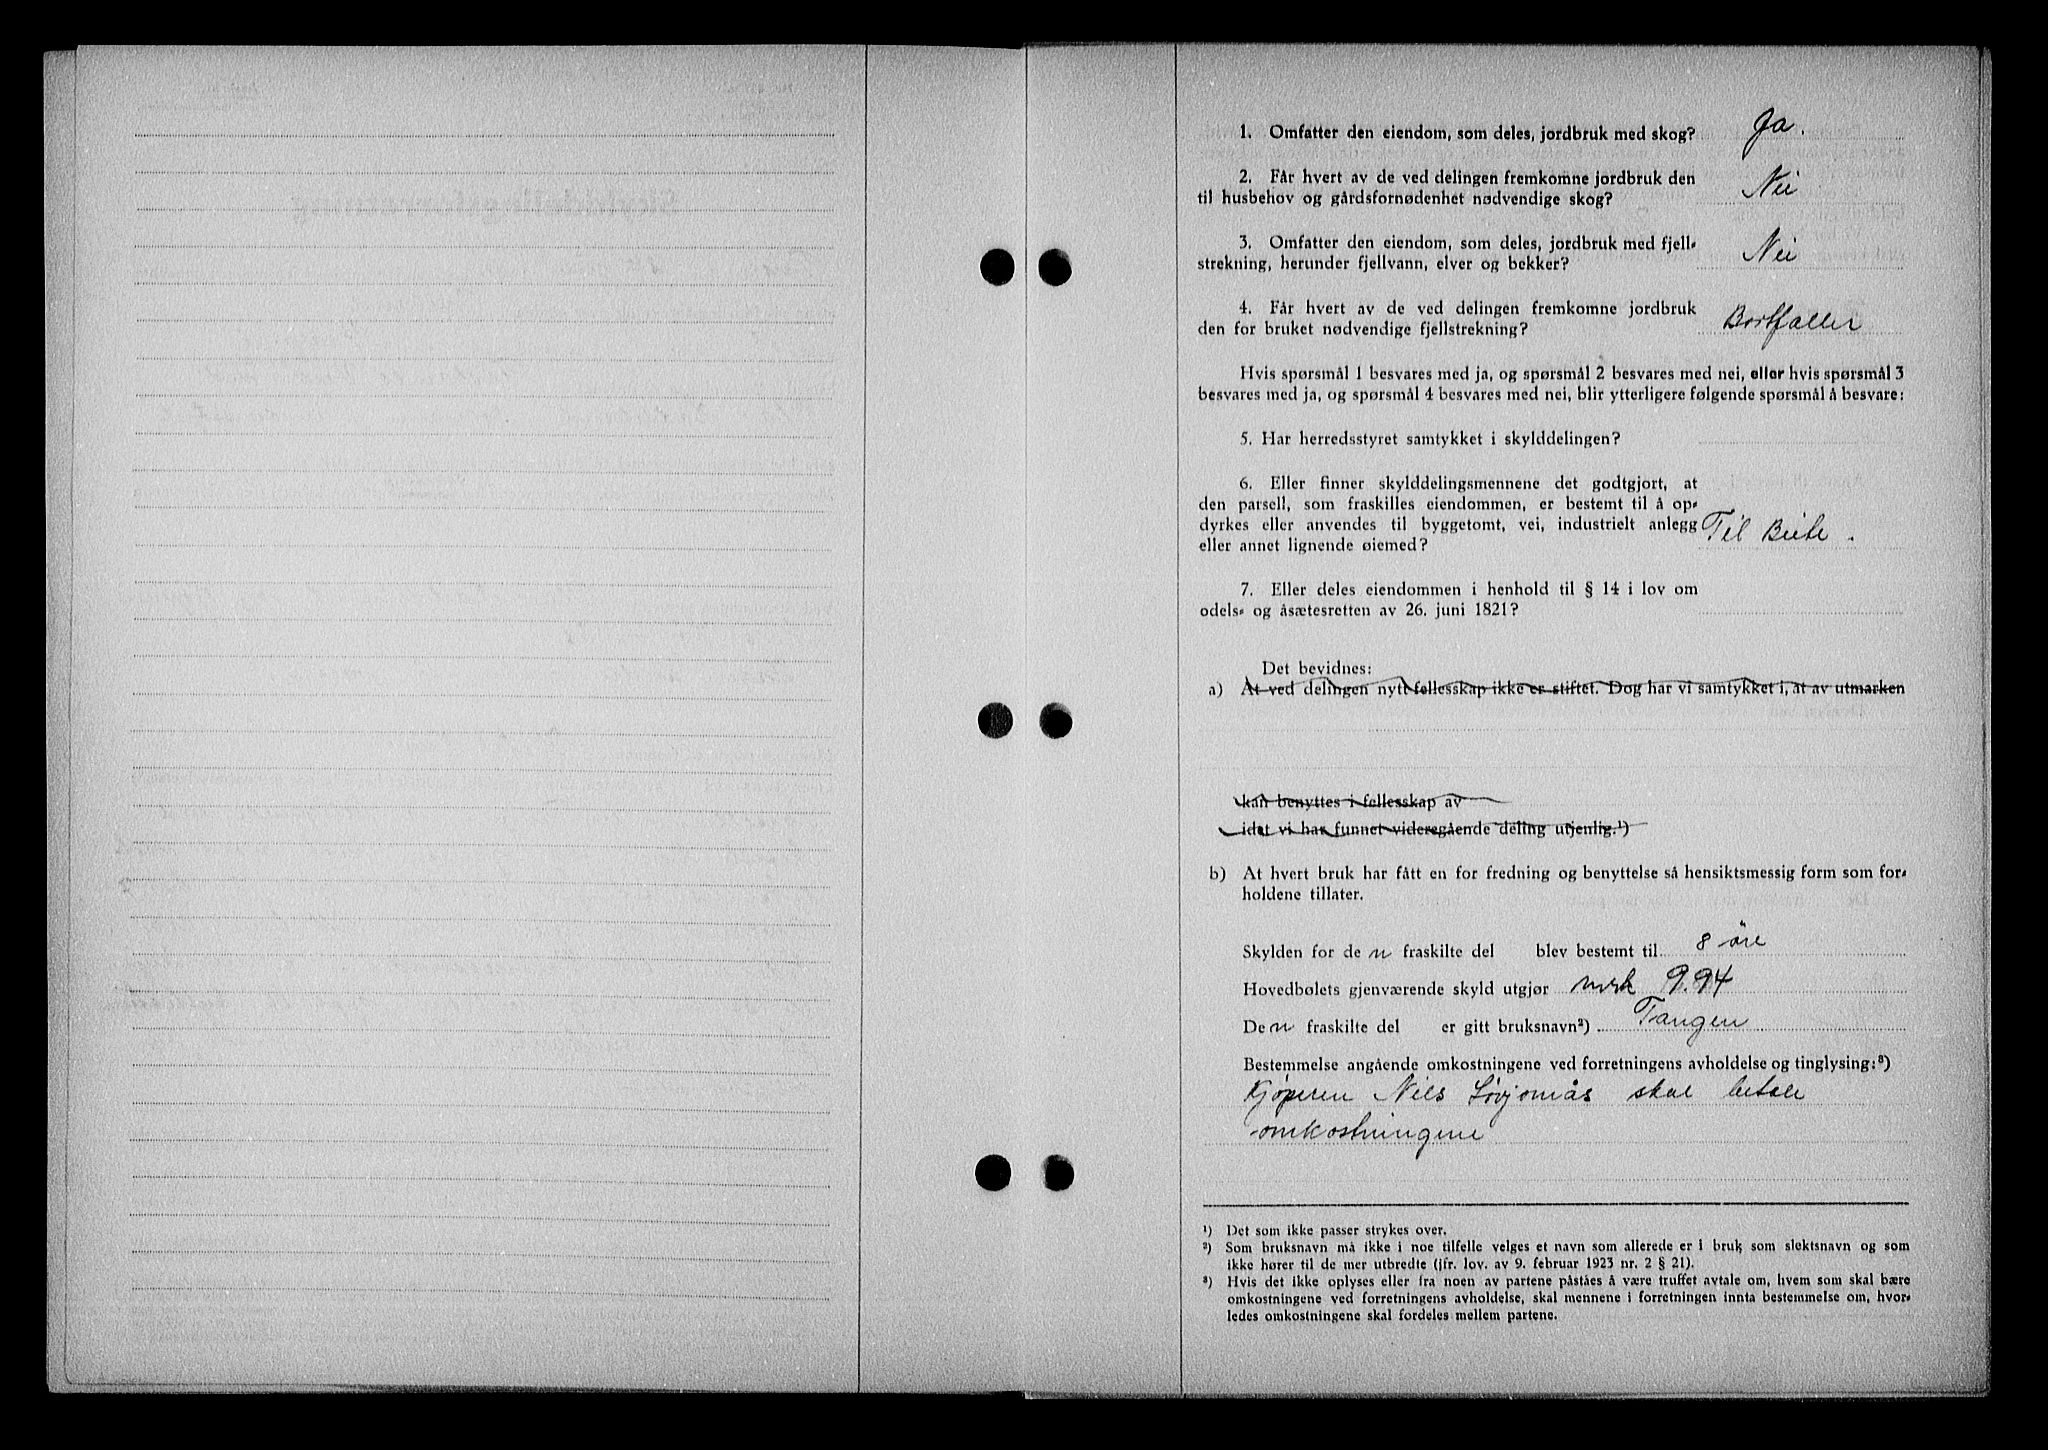 1. Omfatter den eiendom, som deles, jordbruk med skog? Ja.
2. Får hvert av de ved delingen fremkomne jordbruk den
til husbehov og gårdsfornødenhet nødvendige skog? Nei
3. Omfatter den eiendom, som deles, jordbruk med fjell-
strekning, herunder fjellvann, elver og bekker? Nei
4. Får hvert av de ved delingen fremkomne jordbruk
den for bruket nødvendige fjellstrekning? Bortfaller
Hvis spørsmål 1 besvares med ja, og spørsmål 2 besvares med nei, eller hvis spørsmål 3
besvares med ja, og spørsmål 4 besvares med nei, blir ytterligere følgende spørsmål å besvare:
5. Har herredsstyret samtykket i skylddelingen?
6. Eller finner skylddelingsmennene det godtgjort, at
den parsell, som fraskilles eiendommen, er bestemt til å op-
dyrkes eller anvendes til byggetomt, vei, industrielt anlegg
eller annet lignende øiemed? Til Beite.
7. Eller deles eiendommen i henhold til § 14 i lov om
odels- og åsætesretten av 26. juni 1821?
Det bevidnes:
a) At ved delingen nytt fellesskap ikke er stiftet. Dog har vi samtykket i, at av utmarken
kan benyttes i fellesskap av
idet vi har funnet videregående deling utjenlig.¹)
b) At hvert bruk har fått en for fredning og benyttelse så hensiktsmessig form som for-
holdene tillater.
Skylden for de n fraskilte del blev bestemt til 8 öre
Hovedbølets gjenværende skyld utgjør mrk 9.94
De n fraskilte del er gitt bruksnavn²) Tangen
Bestemmelse angående omkostningene ved forretningens avholdelse og tinglysing:³)
Kjøperen Niels skal betale
omkostningene
¹) Det som ikke passer strykes over.
²) Som bruksnavn må ikke i noe tilfelle velges et navn som allerede er i bruk som slektsnavn og som
ikke hører til de mer utbredte (jfr. lov. av 9. februar 1923 nr. 2 § 21).
³) Hvis det ikke oplyses eller fra noen av partene påståes å være truffet avtale om, hvem som skal bære
omkostningene ved forretningens avholdelse, skal mennene i forretningen innta bestemmelse om, hvor-
ledes omkostningene skal fordeles mellem partene.